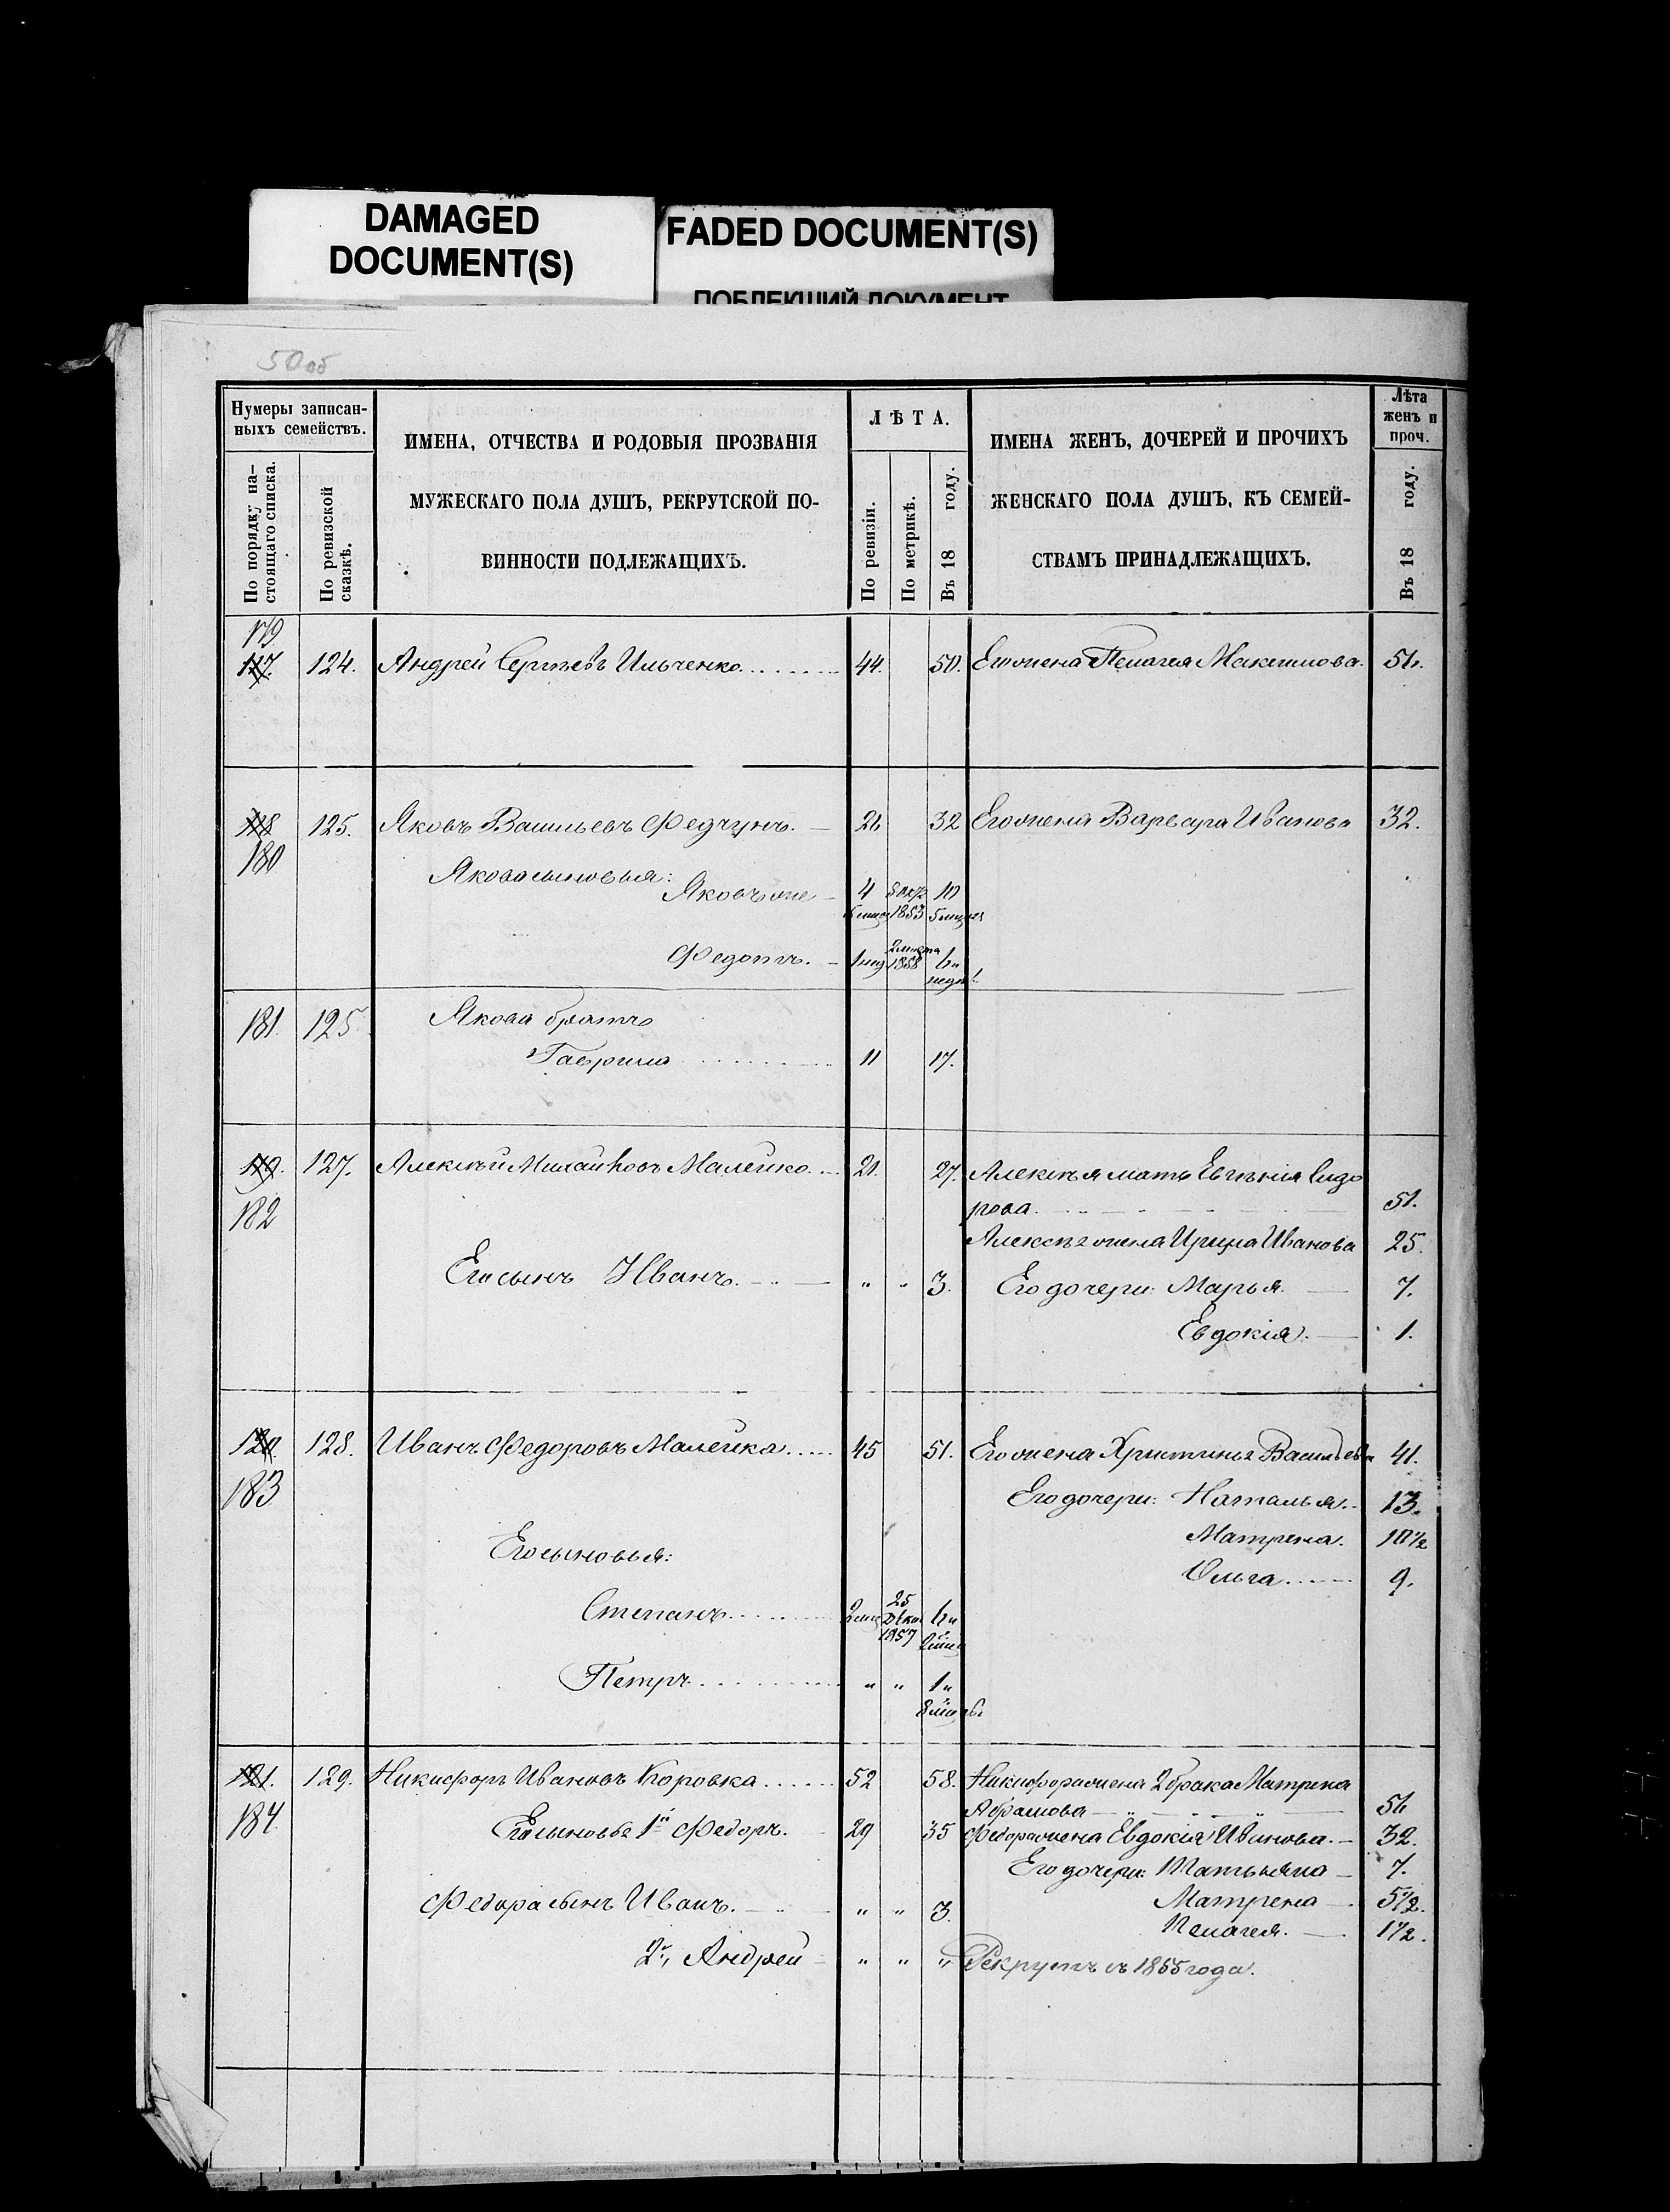 DAMAGED
DOCUMENT(S)
FADED DOCUMENT(S)
ПОБЛЕКШИЙ ДОКУМЕНТ
50 об
Нумеры записан-
ныхъ семействъ.
По порядку на-
стоящаго списка.
По ревизской
сказкѣ.
ИМЕНА, ОТЧЕСТВА И РОДОВЫЯ ПРОЗВАНІЯ
МУЖЕСКАГО ПОЛА ДУШЪ, РЕКРУТСКОЙ ПО-
ВИННОСТИ ПОДЛЕЖАЩИХЪ.
ЛѢТА.
По ревизіи.
По метрикѣ.
Въ 18 году.
ИМЕНА ЖЕНЪ, ДОЧЕРЕЙ И ПРОЧИХЪ
ЖЕНСКАГО ПОЛА ДУШЪ, КЪ СЕМЕЙ-
СТВАМЪ ПРИНАДЛЕЖАЩИХЪ.
Лѣта
женъ и
проч.
Въ 18 году.
179
117. 124. Андрей Сергѣевъ Ильченко 44. 50. Его жена Пелагея Максимова. 51.
118 125. Яковъ Васильевъ Федчунъ. 26 32 Его жена Варвара Иванова 32.
180
Якова сыновья:
Яковъ же 4 10
1853 5 мцев
Федотъ. 1 нед 2 марта 1858 6 и
недел
181. 125 Якова братъ
Гаврило 11 17.
119. 127. Алексѣй Михайловъ Малейко. 21. 27. Алексѣя мать Евгенія Сидо
182 рова. 51.
Алексѣя жена Ирина Иванова 25.
Его сынъ Иванъ. " " 3. Его дочери: Марья 7.
Евдокія. 1.
120. 128. Иванъ Федоровъ Малейка 45 51. Его жена Христинья Васильева 41.
183 Его дочери: Наталья. 13.
Матрена. 10 1/2
Его сыновья:
Ольга 9.
Степанъ 2 мц 25 Дека 1857 6 и
2 мц
Петръ " " 1 и
8 мцовъ
121. 129. Никифоръ Ивановъ Коровка 52 58. Никифора жена 2 брака Матрена
184. Абрамова 56
Его сыновья 1й Федоръ. 29 35 Федора жена Евдокія Иванова. 32.
Его дочери: Татьяна 7.
Федора сынъ Иванъ. " " 3. Матрена 5 1/2.
Пелагея. 1 1/2.
2й, Андрей " " " Рекрутъ съ 1855 года.